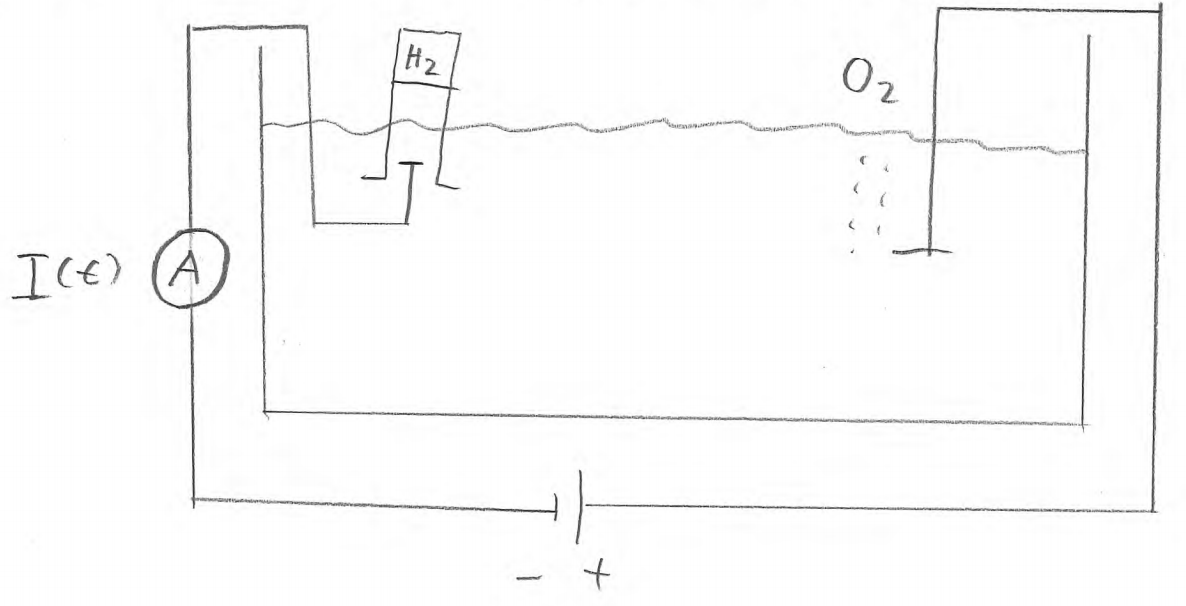 H₂
O₂
I(t)
A
- +